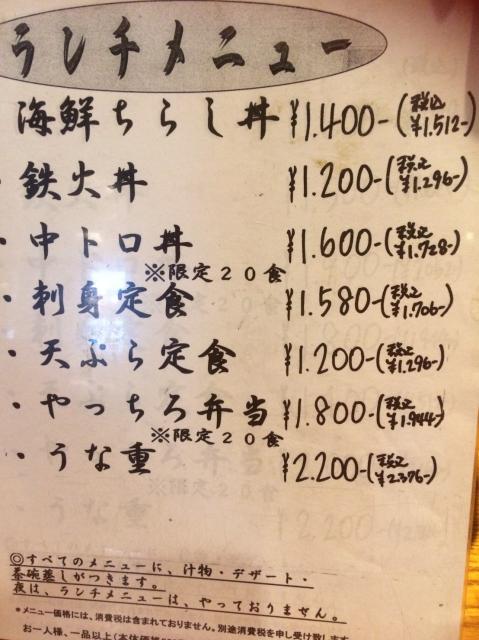 ランチメニュー
海鮮ちらし丼 ¥1.400-(税込¥1.512-)
・鉄火丼 ¥1.200-(税込¥1.296-)
・中トロ丼 ¥1.600-(税込¥1.728-)
※限定20食
・刺身定食 ¥1.580-(税込¥1.706-)
・天ぷら定食 ¥1.200-(税込¥1.296-)
・やっちろ弁当 ¥1.800-(税込¥1.944-)
※限定20食
・うな重 ¥2.200-(税込¥2.376-)
◎すべてのメニューに、汁物・デザート・
茶碗蒸しがつきます。
夜は、ランチメニューは、やっておりません。
*メニュー価格には、消費税は含まれておりません。別途消費税を申し受け致します
お一人様、一品以上(本体価格